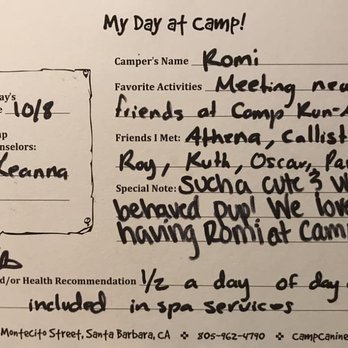 My Day at Camp!
Camper's Name Romi
Favorite Activities Meeting new
friends at Camp Run-A
10/8
Friends I Met: Athena, Callist
Keanna
Roy, Ruth, Oscar,
Special Note: Such a cute & w
behaved pup! We love
having Romi at Cam
d/or Health Recommendation 1/2 a day of day
included in spa services
Montecito Street, Santa Barbara, CA 805-962-4790 CampCanine